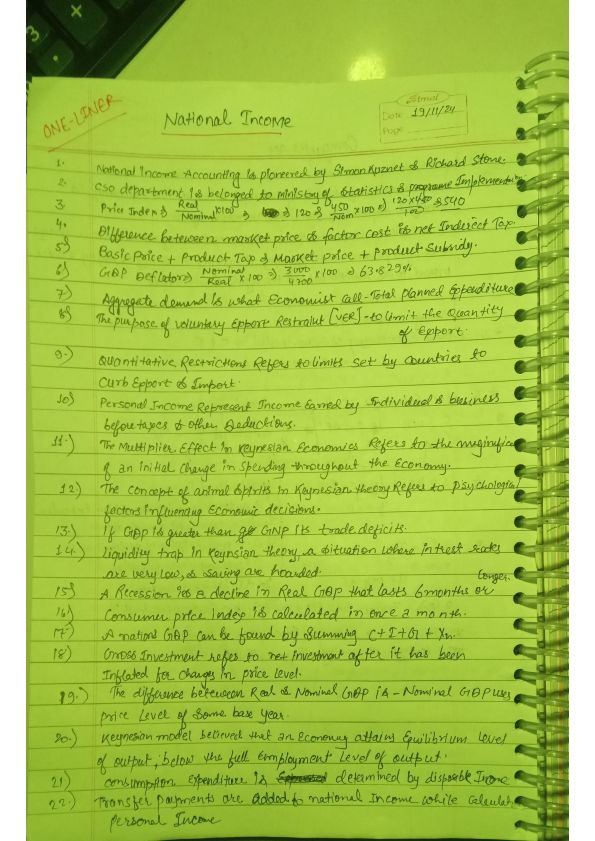 3
x
Simul
ONE-LINER
National Income
Date 19/11/24
Page
1. National Income Accounting is pioneered by Simon Kuznet & Richard Stone.
2. CSO department is belonged to ministry of Statistics & programe Implementation
3. Price Index ⇒ Real/Nominal x100 ⇒ 120 ⇒ 450/Nom x100 ⇒ 120x450/100 ⇒ 540
4. Difference beteween market price & factor cost is net Indirect Tax.
5) Basic Price + Product Tax ⇒ Market price + Product Subsidy.
6) GDP Deflator ⇒ Nominal/Real x100 ⇒ 3000/4700 x100 ⇒ 63.829%
7) Aggregate demand is what Economist call - Total planned Expenditure
8) The purpose of voluntary Export Restraint [VER] - to limit the Quantity
of Export.
9.) Quantitative Restrictions Refers to limits set by Countries to
Curb Export & Import.
10) Personal Income Represent Income Earned by Individual & business
before taxes & other Deductions.
11.) The Multiplier Effect in Keynesian Economics Refers to the magnific
of an initial change in Spending throughout the Economy.
12) The concept of animal Spirits in Keynesian theory Refers to Psychological
factors influencing Economic decisions.
13.) If GDP is greater than GNP its trade deficits.
14.) Liquidity trap in Keynsian theory, a situation where intrest rates
are very low, & saving are hoarded.
15) A Recession is a decline in Real GDP that lasts 6 months or Longer.
16) Consumer price Index is calculated in once a month.
17) A nations GDP can be found by Summing C+I+G+Xn.
18) Gross Investment refers to net Investment after it has been
Inflated for Changes in price level.
19.) The difference beteween Real & Nominal GDP is - Nominal GDP uses
price Level of Some base year.
20.) Keynesian model believed that an Economy attains Equilibrium level
of output, below the full Employment Level of output.
21) Consumption Expenditure is determined by disposable Income
22.) Transfer payments are added to national Income while Calculat
Personal Income